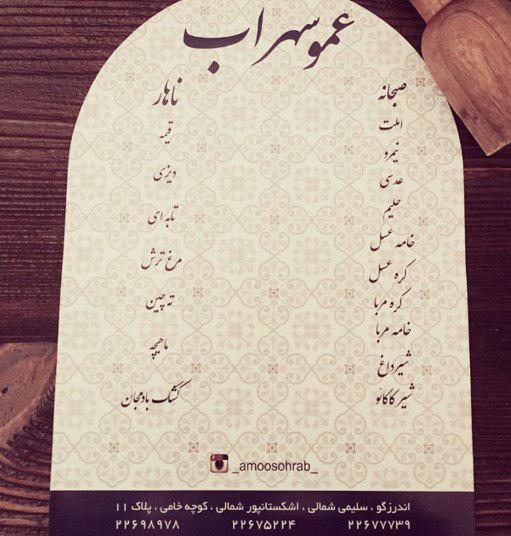 عمو سهراب
صبحانه
املت
نیمرو
عدسی
حلیم
خامه عسل
کره عسل
کره مربا
خامه مربا
شیر داغ
شیر کاکائو
ناهار
قیمه
دیزی
تابه ای
مرغ ترش
ته چین
ماهیچه
کشک بادمجان
_amoosohrab_
اندرزگو ، سلیمی شمالی ، اشکستانپور شمالی ، کوچه خامی ، پلاک ۱۱
۲۲۶۹۸۹۷۸ ۲۲۶۷۵۲۲۴ ۲۲۶۷۷۷۳۹